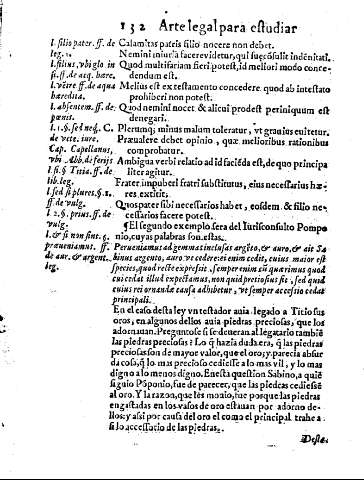 132 Arte legal para estudiar
l. filio pater. ff. de leg. 1.
l. filius, vbi glo in si. ff. de acq. hære.
l. vetre ff. de aqua hæredita.
l. absentem. ff. de pœnis.
l. 1. §. sed neq;. C.
Cap. Capellanus, vbi Abb. de ferijs
l. si. § Titia. ff. de lib. leg.
l. sed si plures. §. 1. ff. de vulg.
l. 2. §. prius. ff. de vulg.
l. & si non sint. §. præueniamut. ff de aur. & argent. leg.
Calamitas patris filio nocere non debet.
Nemini iniuria facere videtur, qui
Quod multifariam fieri potest, id meliori modo concedendum est.
Melius est ex testamento concedere, quod ab intestato
prohiberi non potest.
Quod nemini nocet & alicui prodest periniquum est
denegari.
Plerunq; minus malum toleratur, vt grauius euitetur.
Præualere debet opinio, quæ melioribus rationibus
comprobatur.
Ambigua verbi relatio ad id facieda est, de quo principaliter agitur.
Frater impuberi fratri substitutus, eius necessarius hæres extitit.
Quos pater sibi necessarios habet, eosdem & filio necessarios facere potest.
¶ El segundo exemplo sera del Iurisconsulto Pomponio, cuyas palabras son estas.
Perueniamus ad gemmas inclusas argēto, & auro, & ait Sabinus argento, auro ve cedere: ei enim cedit, cuius maior est
species, quod recte expressit, semper enim cū quærimus quod
cui cedat illud expectamus, non quid pretiosius sit, sed quid
cuius rei ornandæ causa adhibetur, vt semper accessio cedat
principali.
En el caso desta ley vn testador auia legado a Titio sus
oros, en algunos dellos auia piedras preciosas, que los
adornauan. Preguntose si se deueran al legatario tambiē
las piedras preciosas? Lo q̄ hazia duda era, q̄ las piedras
preciosas son de mayor valor, que el oro; y parecia absurda cosa, q̄ lo mas precioso cediesse a lo mas vil, y lo mas
digno a lo menos digno. En esta question Sabino, a quiē
siguio Pōponio, fue de parecer, que las piedras cediessē
al oro. Y la razon, que les mouio, fue porque las piedras
engastadas en los vasos de oro estauan por adorno dellos: y assi por causa del oro el como el principal trahe a
si lo accessorio de las piedras.
Deste